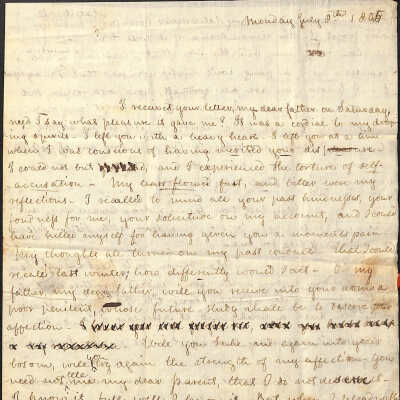 Monday July 8th 1805
I receiv'd your letter, my dear father on Saturday,
need I say what pleasure it gave me? It was a cordial to my droop
ing spirits - I left you with a heavy heart. I left you at a time
when I was conscious of having merited your dis
I could not but and I experienced the torture of self-
accusation - My tears flowed fast, and bitter were my
reflections - I recalled to mind all your past kindnesses, your
fondness for me, your solicitude on my account, and I could
have killed myself for having given you a moments pain
My thoughts all turn on my past conduct. that I could
recall last winter, how differently would I act - O my
father, my dear father, will you receive into your arms a
poor penitent, whose future study shall be to deserve your
affection - I
Will you take me again into your
bosom, will you try again the strength of my affection - You
need not tell me my dear parent, that I do not deserve it -
I know it full well I But when I